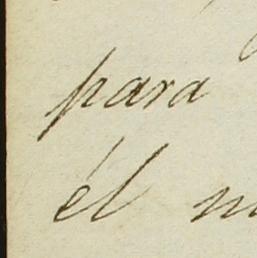 para
él